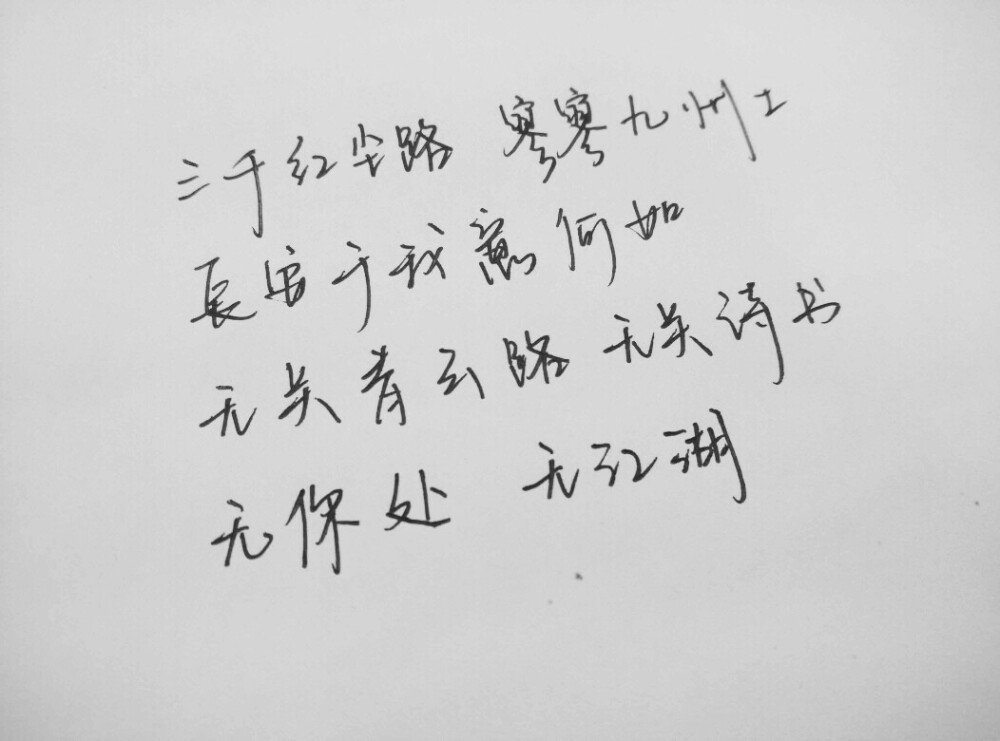 三千红尘路 寥寥九州土
辰宿于我意何如
无关青云路 无关诗书
无保处 无江湖